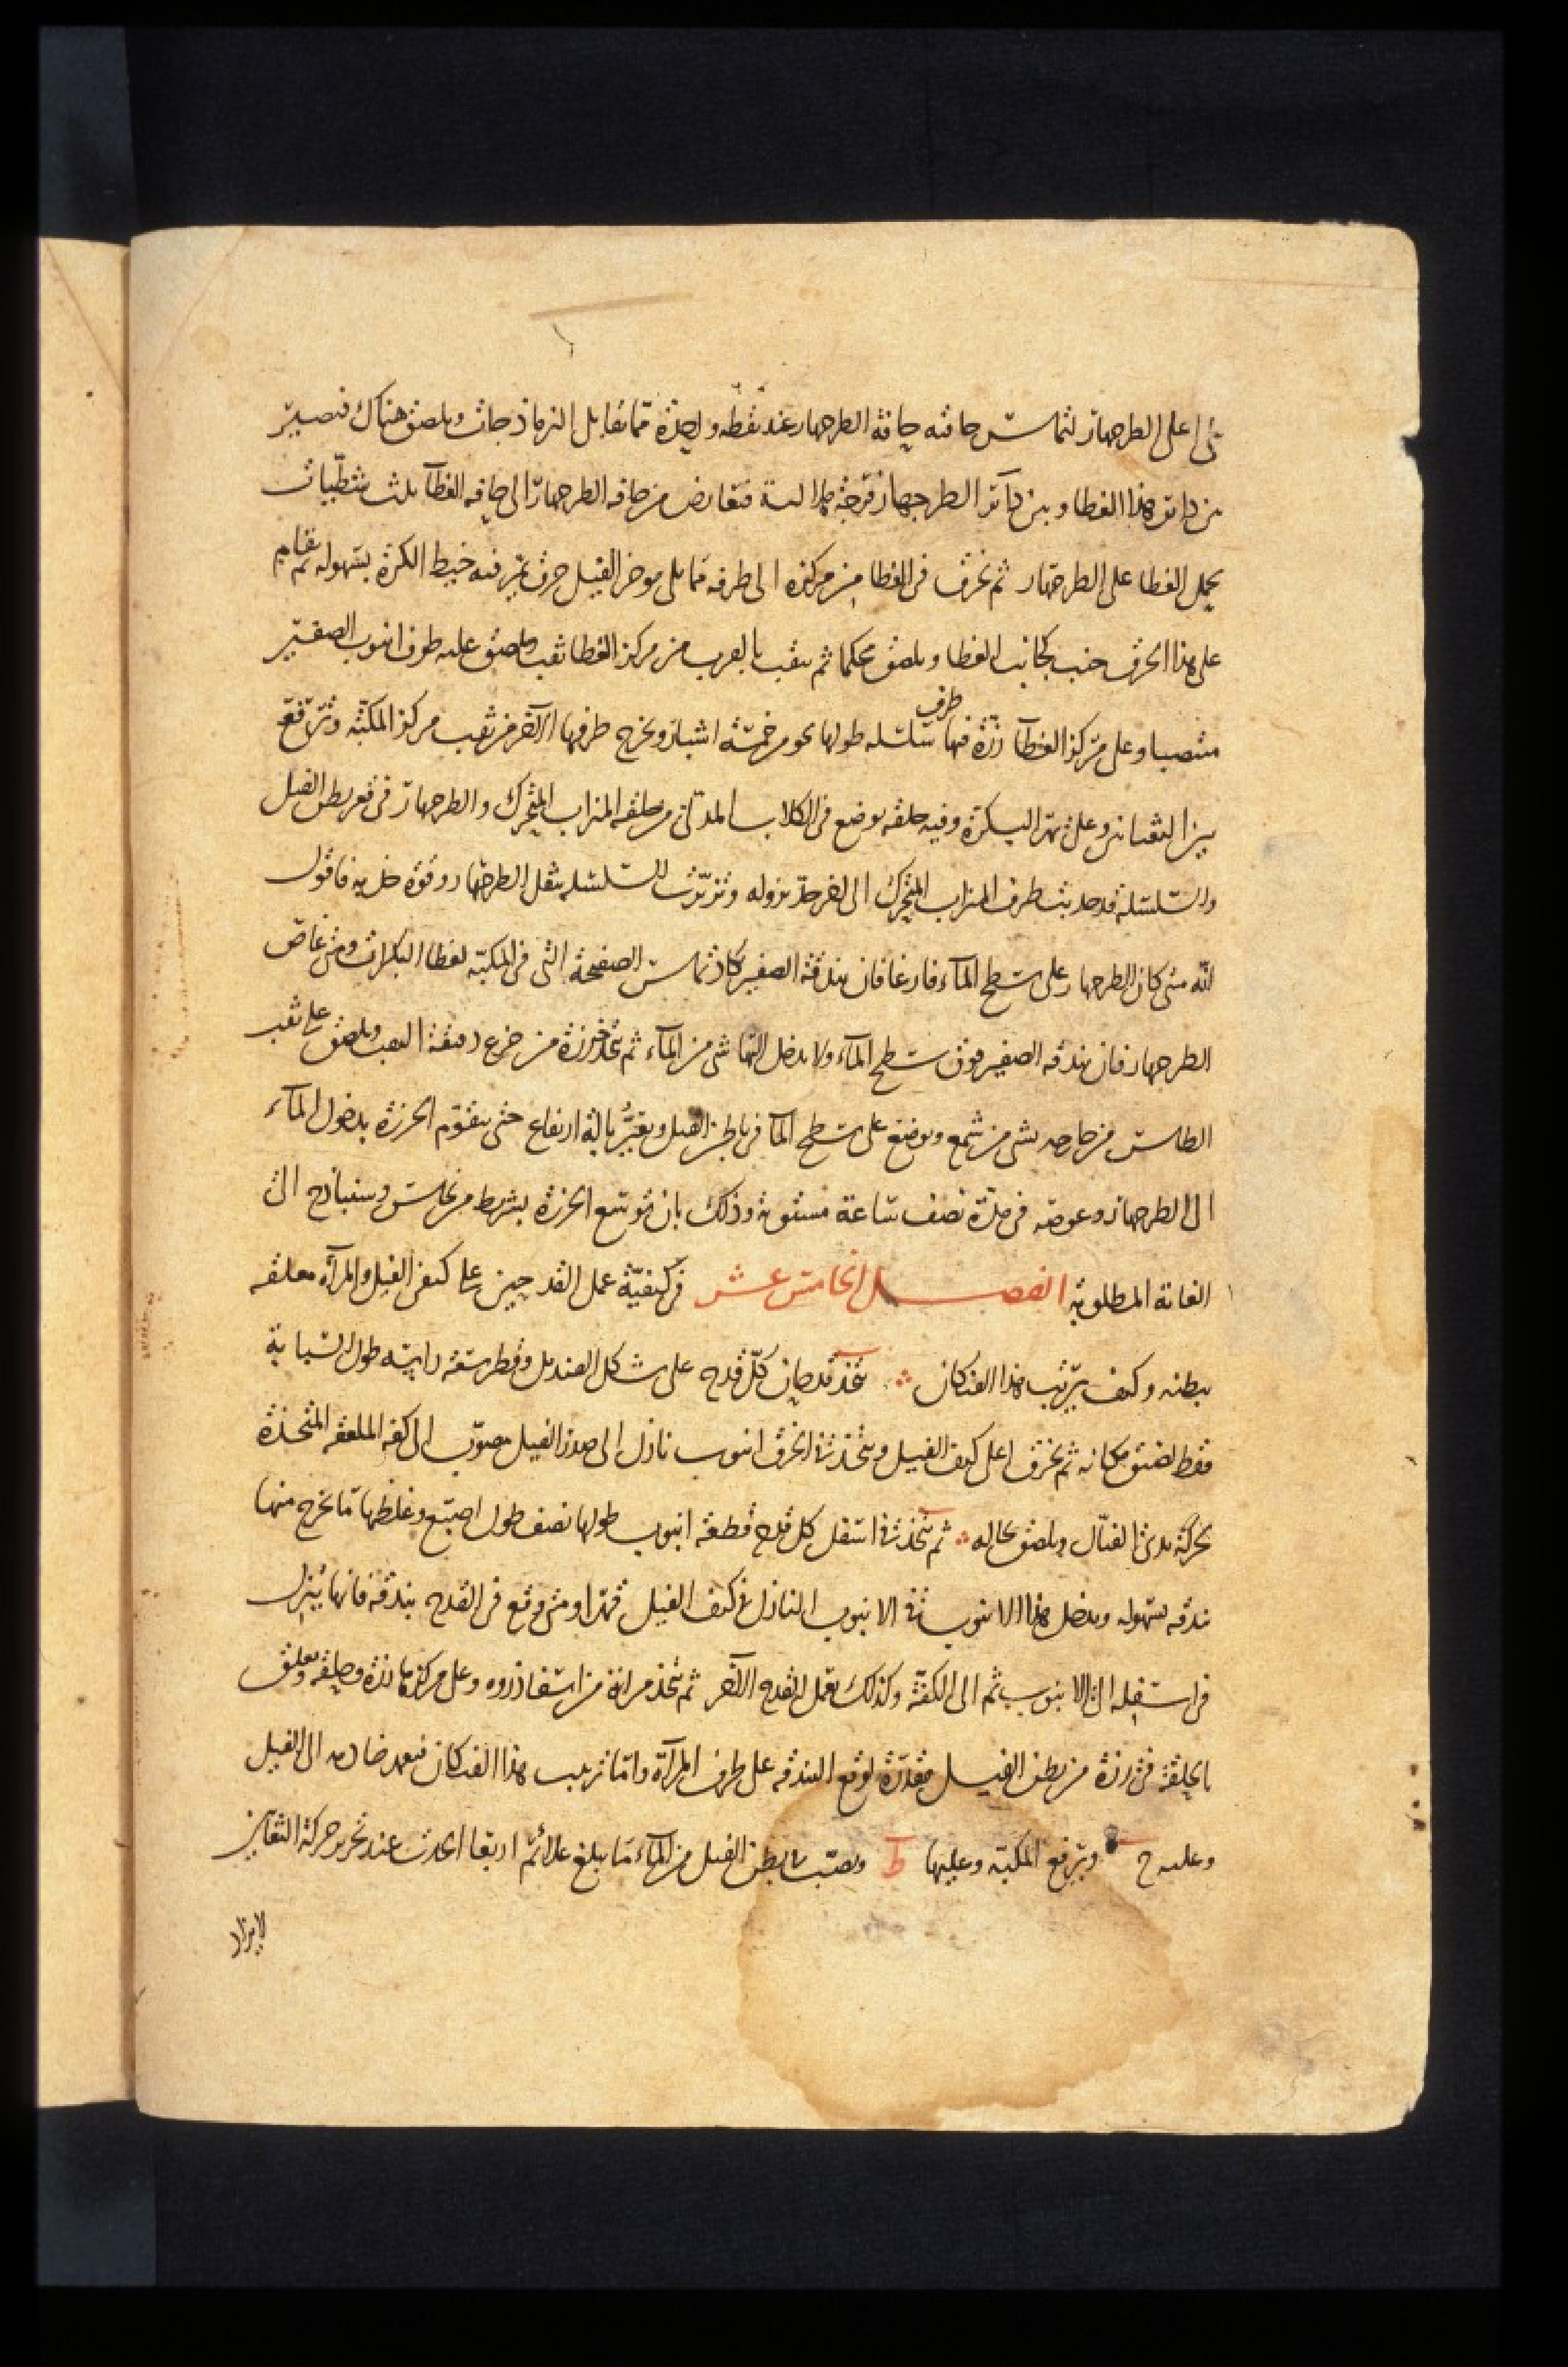 على اعلى الطرجهار لتماس حافته حافة الطرجهار عند نقطة واحدة مما تقابل النرماذجات ويلصق هناك فتصير
بين دائر هذا الغطا وبين دائر الطرجهار فرجة هلالية فتعارض من حافة الطرجهار الى حافه الغطا ثلث شظيات
يحمل الغطا على الطرجهار ثم يخرق في الغطا من مركزه الى طرفه مما يلى موخر الفيل خرق يمر فيه خيط الكرة بسهوله ثم يقام
على هذا الخرق جنب بجانب الغطا ويلصق محكما ثم يثقب بالقرب من مركز الغطا ثقب ويلصق عليه طرف انبوب الصغير
منتصبا وعلى مركز الغطا رزة فيها طرف سلسله طولها نحو من خمسة اشبار ويخرج طرفها الاخر من ثقب مركز المكبّه وترتفع
بين الثعبانين وعلى البكرة وفيه حلقه توضع في الكلاب المدلى من حلقه المنراب المتحرك والطرجهار في قعر بطن الفيل
والسلسلة قد جذبت طرف المنراب المتحرك الى اخر حد نزوله وتوترت السلسله بثقل الطرجهار وقوة جذبه فاقول
انه متى كان الطرجهار على سطح الماء فارغا فان بندقة الصغير كاد تماس الصفيحة التى في المكبّه لغطا البكرات ومتى غاص
الطرجهار فان بندقه الصغير فوق سطح الماء ولا يدخل اليها شى من الماء ثم تتخذ خرزة من جزع دقيقة الثقب ويلصق على ثقب
الطاس من خارجه بشى من شمع ويوضع على سطح الما في باطن الفيل ويعير بآلة ارتفاع حتى يتقوم الخرزة بدخول الماء
الى الطرجهار وغوصه في مدة نصف ساعة مستوية وذلك بان توسع الخرزة بشريط من نحاس وسنباذج الى
الغاية المطلوبة الفصل الخامس عشر في كيفيّة عمل القدحين على كتفى الفيل والمرآة معلقه
ببطنه وكيف ترتيب هذا الفنكان يتخذ قدحان كلّ قدح على شكل القنديل وقطر سعة راسه طول السبابة
فقط لضيق مكانه ثم يخرق اعلى كتف الفيل ويتخذ في الخرق انبوب نازل الى صدر الفيل مصوّب الى كفه الملعقه المتخذة
بحركة يدى الفيّال ويلصق بحاله ثم يتخذ في اسفل كل قدح قطعة انبوب طولها نصف طول اصبع وغلظها مما يخرج منها
بندقه بسهوله ويدخل هذا الانبوب في الانبوب النازل في كتف الفيل قهرا ومتى وقع في القدح بندقه فانها ينزل
في اسفله الى الانبوب ثم الى الكفّة وكذلك يعمل القدح الآخر ثم يتخذ مرآة من اسفاذرويه وعلى مركزها رزة وحلقه ويعلق
بالحلقة في رزة من بطن الفيل مقدّرة لوقع البندقه على طرف المرآة واما ترتيب هذا الفنكان فيعمد خادمه الى الفيل
وعليه ح ويرفع المكبّه وعليها ط ويصبّ في بطن الفيل من الماء ما يبلغ علائم اربعا احدثت عند تحرير حركة الثعابين
لايزاد